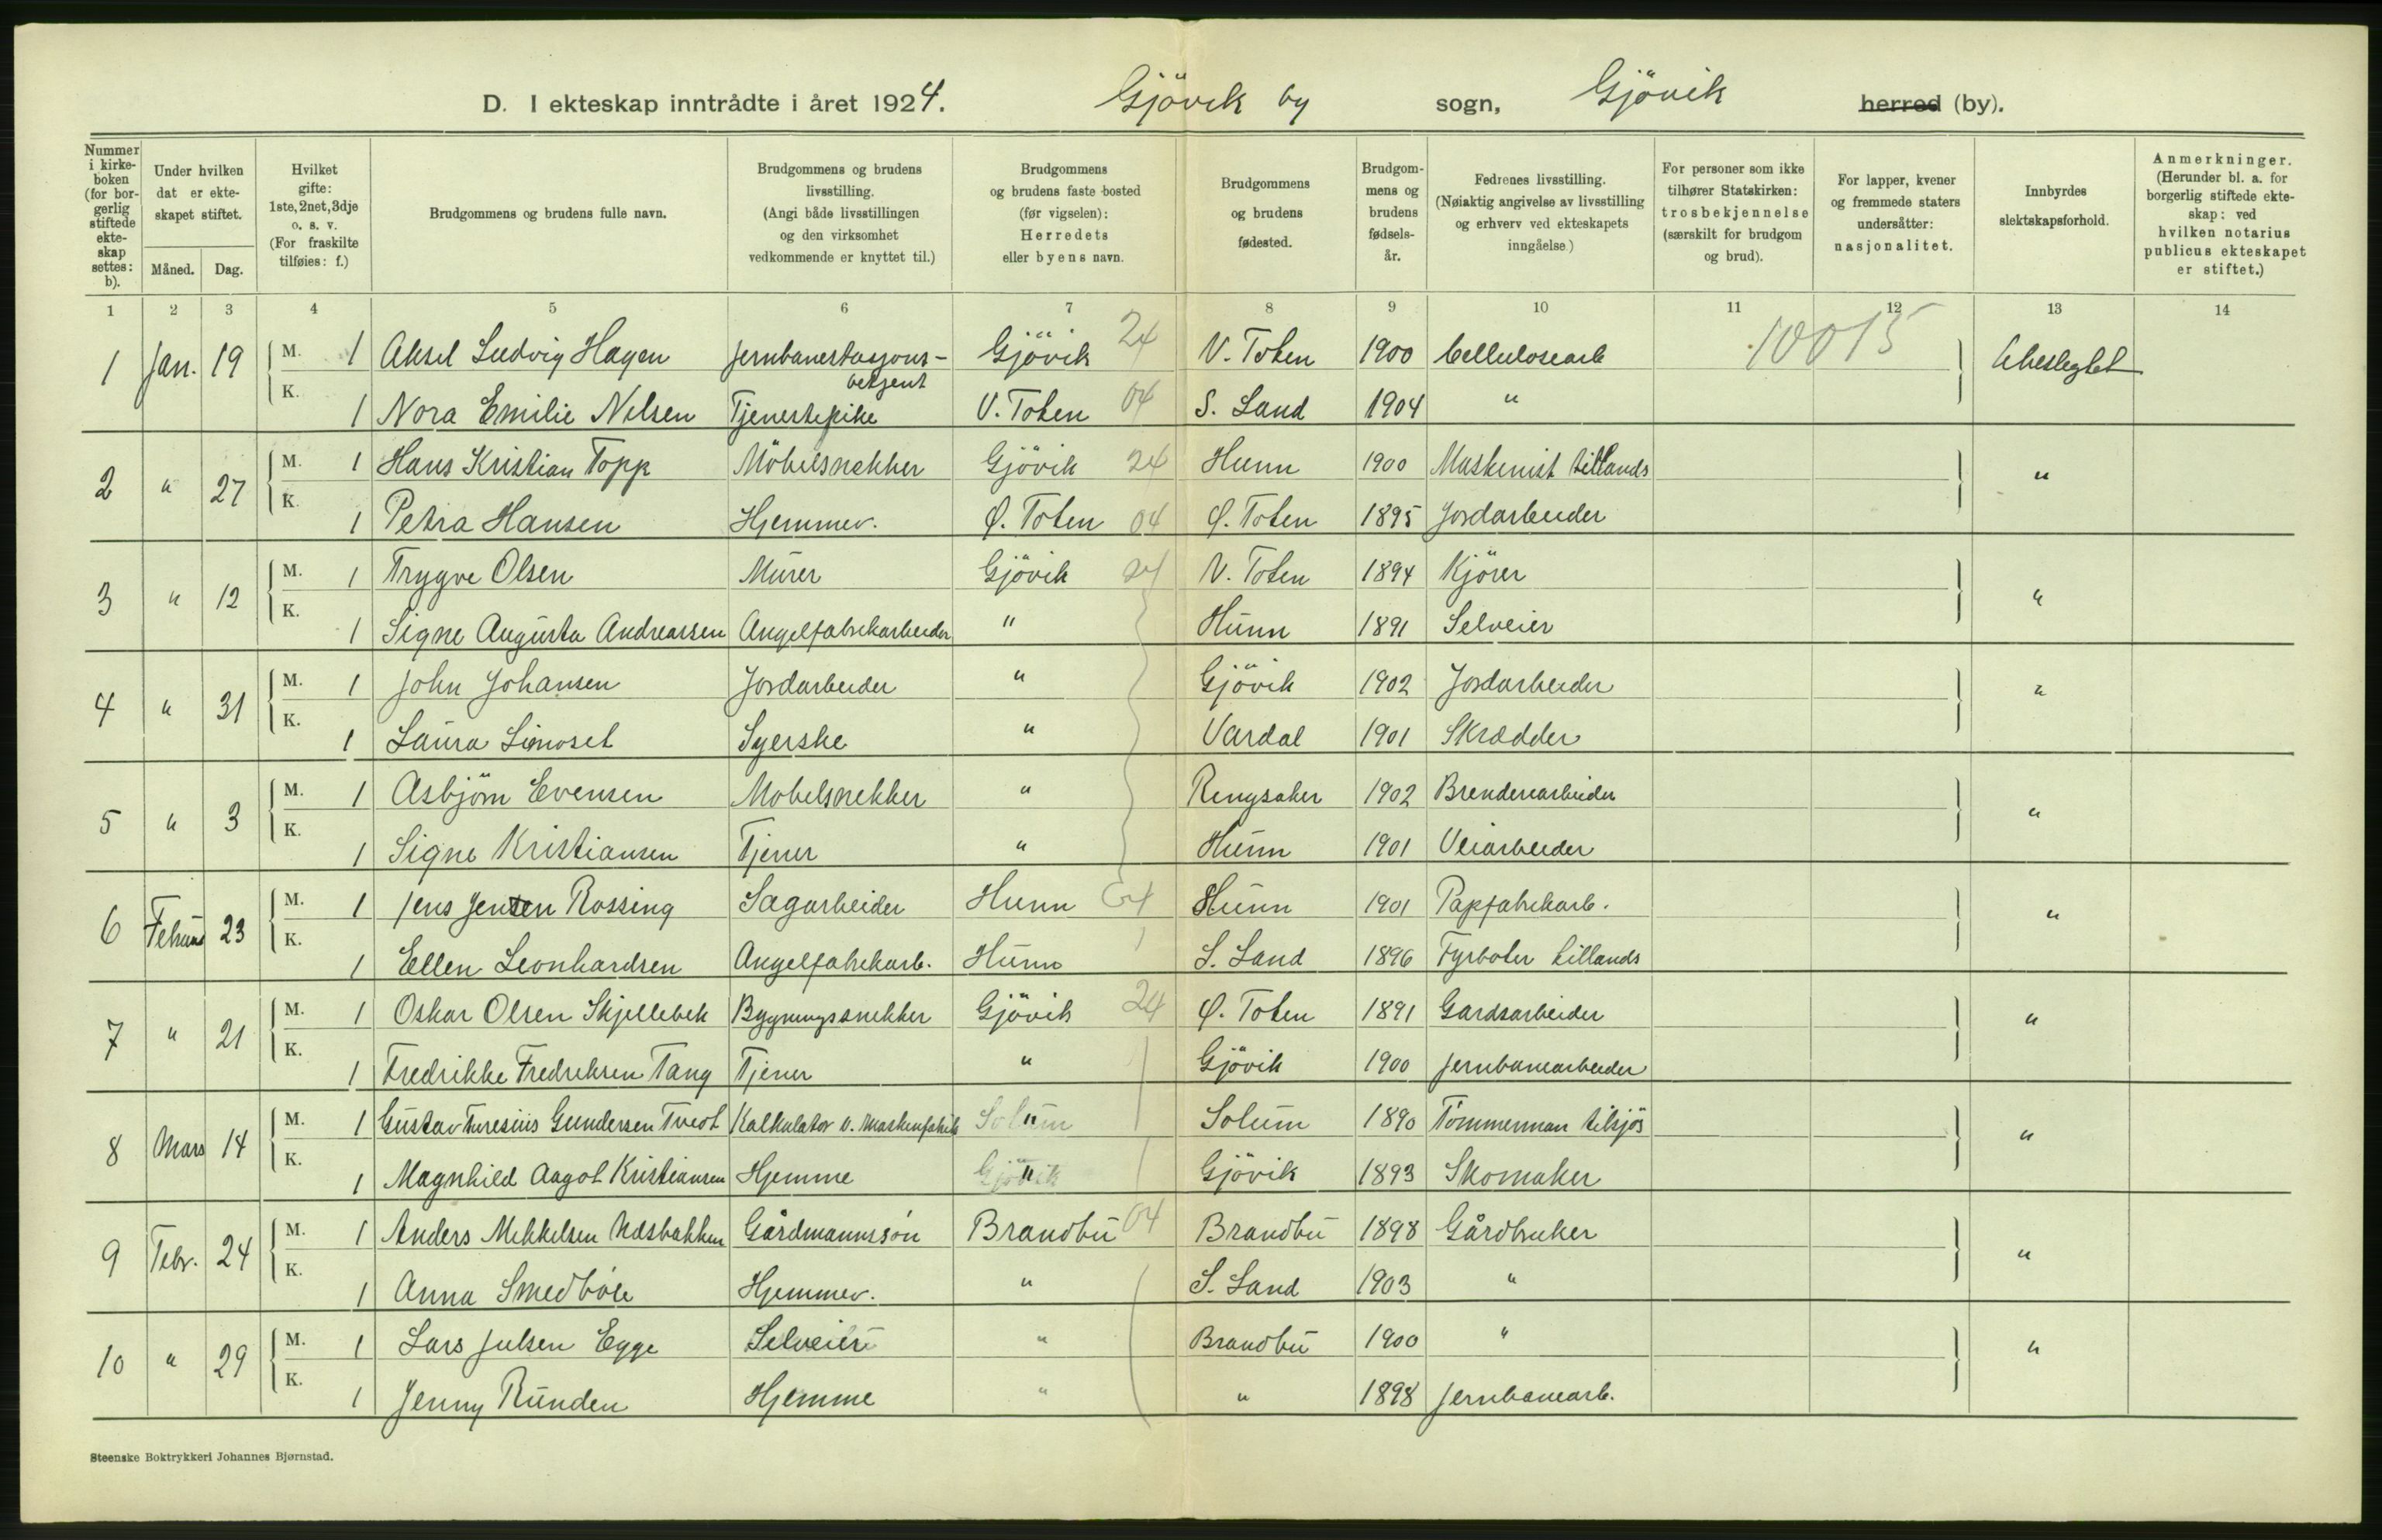 D. I ekteskap inntrådte i året 1924. Gjövik by sogn, Gjövik herred (by).
Nummer i kirkeboken (for borgerlig stiftede ekteskap settes: b).
Under hvilken dat er ekteskapet stiftet.
Måned. Dag.
Hvilket gifte: 1ste, 2net, 3dje o. s. v. (For fraskilte tilføies: f.)
Brudgommens og brudens fulle navn.
Brudgommens og brudens livsstilling. (Angi både livsstillingen og den virksomhet vedkommende er knyttet til.)
Brudgommens og brudens faste bosted (før vigselen): Herredets eller byens navn.
Brudgommens og brudens fødested.
Brudgommens og brudens fødselsår.
Fedrenes livsstilling. (Nøiaktig angivelse av livsstilling og erhverv ved ekteskapets inngåelse.)
For personer som ikke tilhører Statskirken: trosbekjennelse (særskilt for brudgom og brud).
For lapper, kvener og fremmede staters undersåtter: nasjonalitet.
Innbyrdes slektskapsforhold.
Anmerkninger. (Herunder bl. a. for borgerlig stiftede ekteskap: ved hvilken notarius publicus ekteskapet er stiftet.)
1 2 3 4 5 6 7 8 9 10 11 12 13 14
1 Jan. 19 M. 1 Aksel Ludvig Hagen Jernbanestasjons-betjent Gjövik 24 V. Toten 1900 Cellulosearb 10015 Ubeslegtet
K. 1 Nora Emilie Nilsen Tjenestepike V. Toten 04 S. Land 1904 "
2 " 27 M. 1 Hans Kristian Topp Möbelsnekker Gjövik 24 Hunn 1900 Maskinist tillands "
K. 1 Petra Hansen Hjemmev. Ø. Toten 04 Ø. Toten 1895 Jordarbeider
3 " 12 M. 1 Trygve Olsen Murer Gjövik 24 V. Toten 1894 Kjörer "
K. 1 Signe Augusta Andreassen Angelfabrikarbeider " Hunn 1891 Selveier
4 " 31 M. 1 John Johansen Jordarbeider " Gjövik 1902 Jordarbeider "
K. 1 Laura Syerske " Vardal 1901 Skrædder
5 " 3 M. 1 Asbjörn Evensen Mobelsnekker " Ringsaker 1902 Brenderiarbeider "
K. 1 Signe Kristiansen Tjener " Hunn 1901 Veiarbeider
6 Februar 23 M. 1 Jens Jensen Rossing Sagarbeider Hunn 04 Hunn 1901 Papfabrikarb. "
K. 1 Ellen Leonhardsen Angelfabrikarb. Hunn S. Land 1896 Fyrböter tillands
7 " 21 M. 1 Oskar Olsen Skjellebek Bygningssnekker Gjövik 24 Ø. Toten 1891 Gardsarbeider "
K. 1 Fredrikke Fredriksen Tang Tjener " Gjövik 1900 Jernbanearbeider
8 Mars 14 M. 1 Gustav Turesius Gundersen Tveit Kalkulator v. Maskinfabrik Solum " Solum 1890 Tömmerman tilsjös "
K. 1 Magnhild Aagot Kristiansen Hjemme Gjövik " Gjövik 1893 Skomaker
9 Febr. 24 M. 1 Anders Mikkelsen Udsbakken Gårdmannssön Brandbu 04 Brandbu 1898 Gårdbruker "
K. 1 Anna Smedböle Hjemmev. " S. Land 1903 "
10 " 29 M. 1 Lars Julsen Egge Selveier " Brandbu 1900 " "
K. 1 Jenny Runden Hjemme " " 1898 Jernbanearb.
Steenske Boktrykkeri Johannes Bjørnstad.